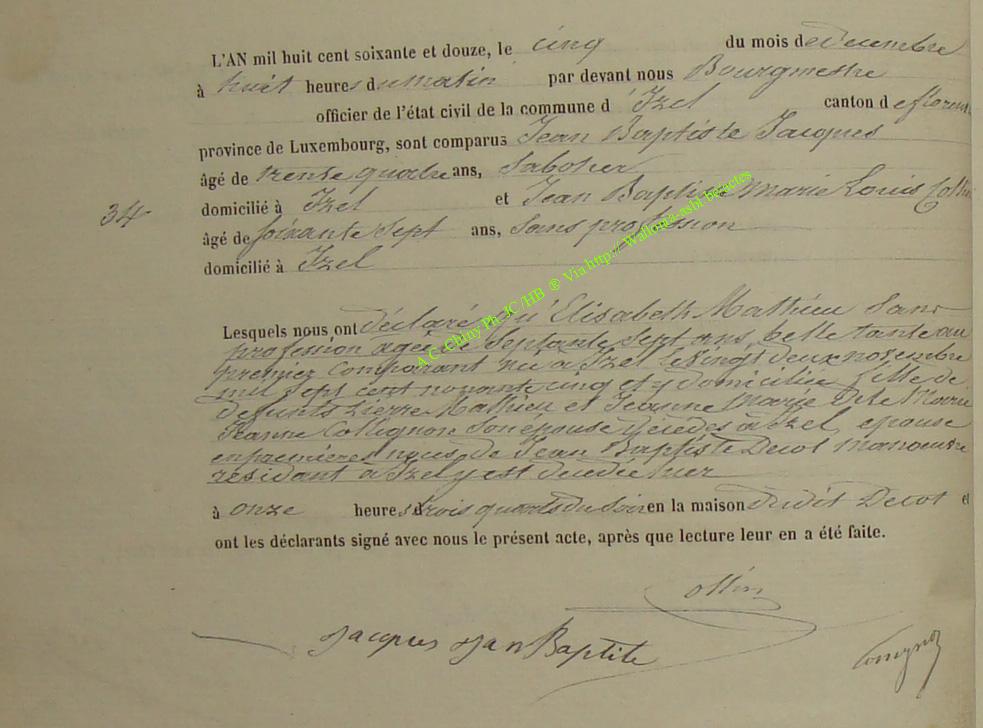 L'AN mil huit cent soixante et douze, le cinq du mois de decembre
à huit heures du matin par devant nous Bourgmestre
officier de l'état civil de la commune d'Izel canton de floren
province de Luxembourg, sont comparus Jean Baptiste Jacques
âgé de trente quatre ans, Sabotier
domicilié à Izel et Jean Baptiste Marie Louis Collin
34
âgé de soixante Sept ans, Sans profession
domicilié à Izel
A C Chiny Ph JC/HB ® Via http// Wallonia-asbl be/actes
Lesquels nous ont déclaré qu'Elisabeth Mathieu Sans
profession agée de Septante Sept ans, belle tante au
premier Comparant née à Izel le vingt deux novembre
mil Sept cent nonante cinq et y domiciliée fille de
defunts Pierre Mathieu et Jeanne Marie
Jeanne Collignon Son épouse decedes à Izel, epouse
en premières noces de Jean Baptiste Decot manoeuvre
résidant à Izel y est decedée hier
à onze heures trois quarts du Soir en la maison dudit Decot et
ont les déclarants signé avec nous le présent acte, après que lecture leur en a été faite.
ollin
Jacques Jan Baptite